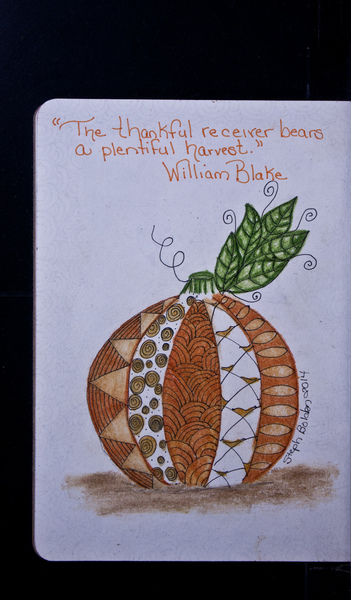 "The thankful receiver bears
a plentiful harvest."
William Blake
Steph Boldon 2014